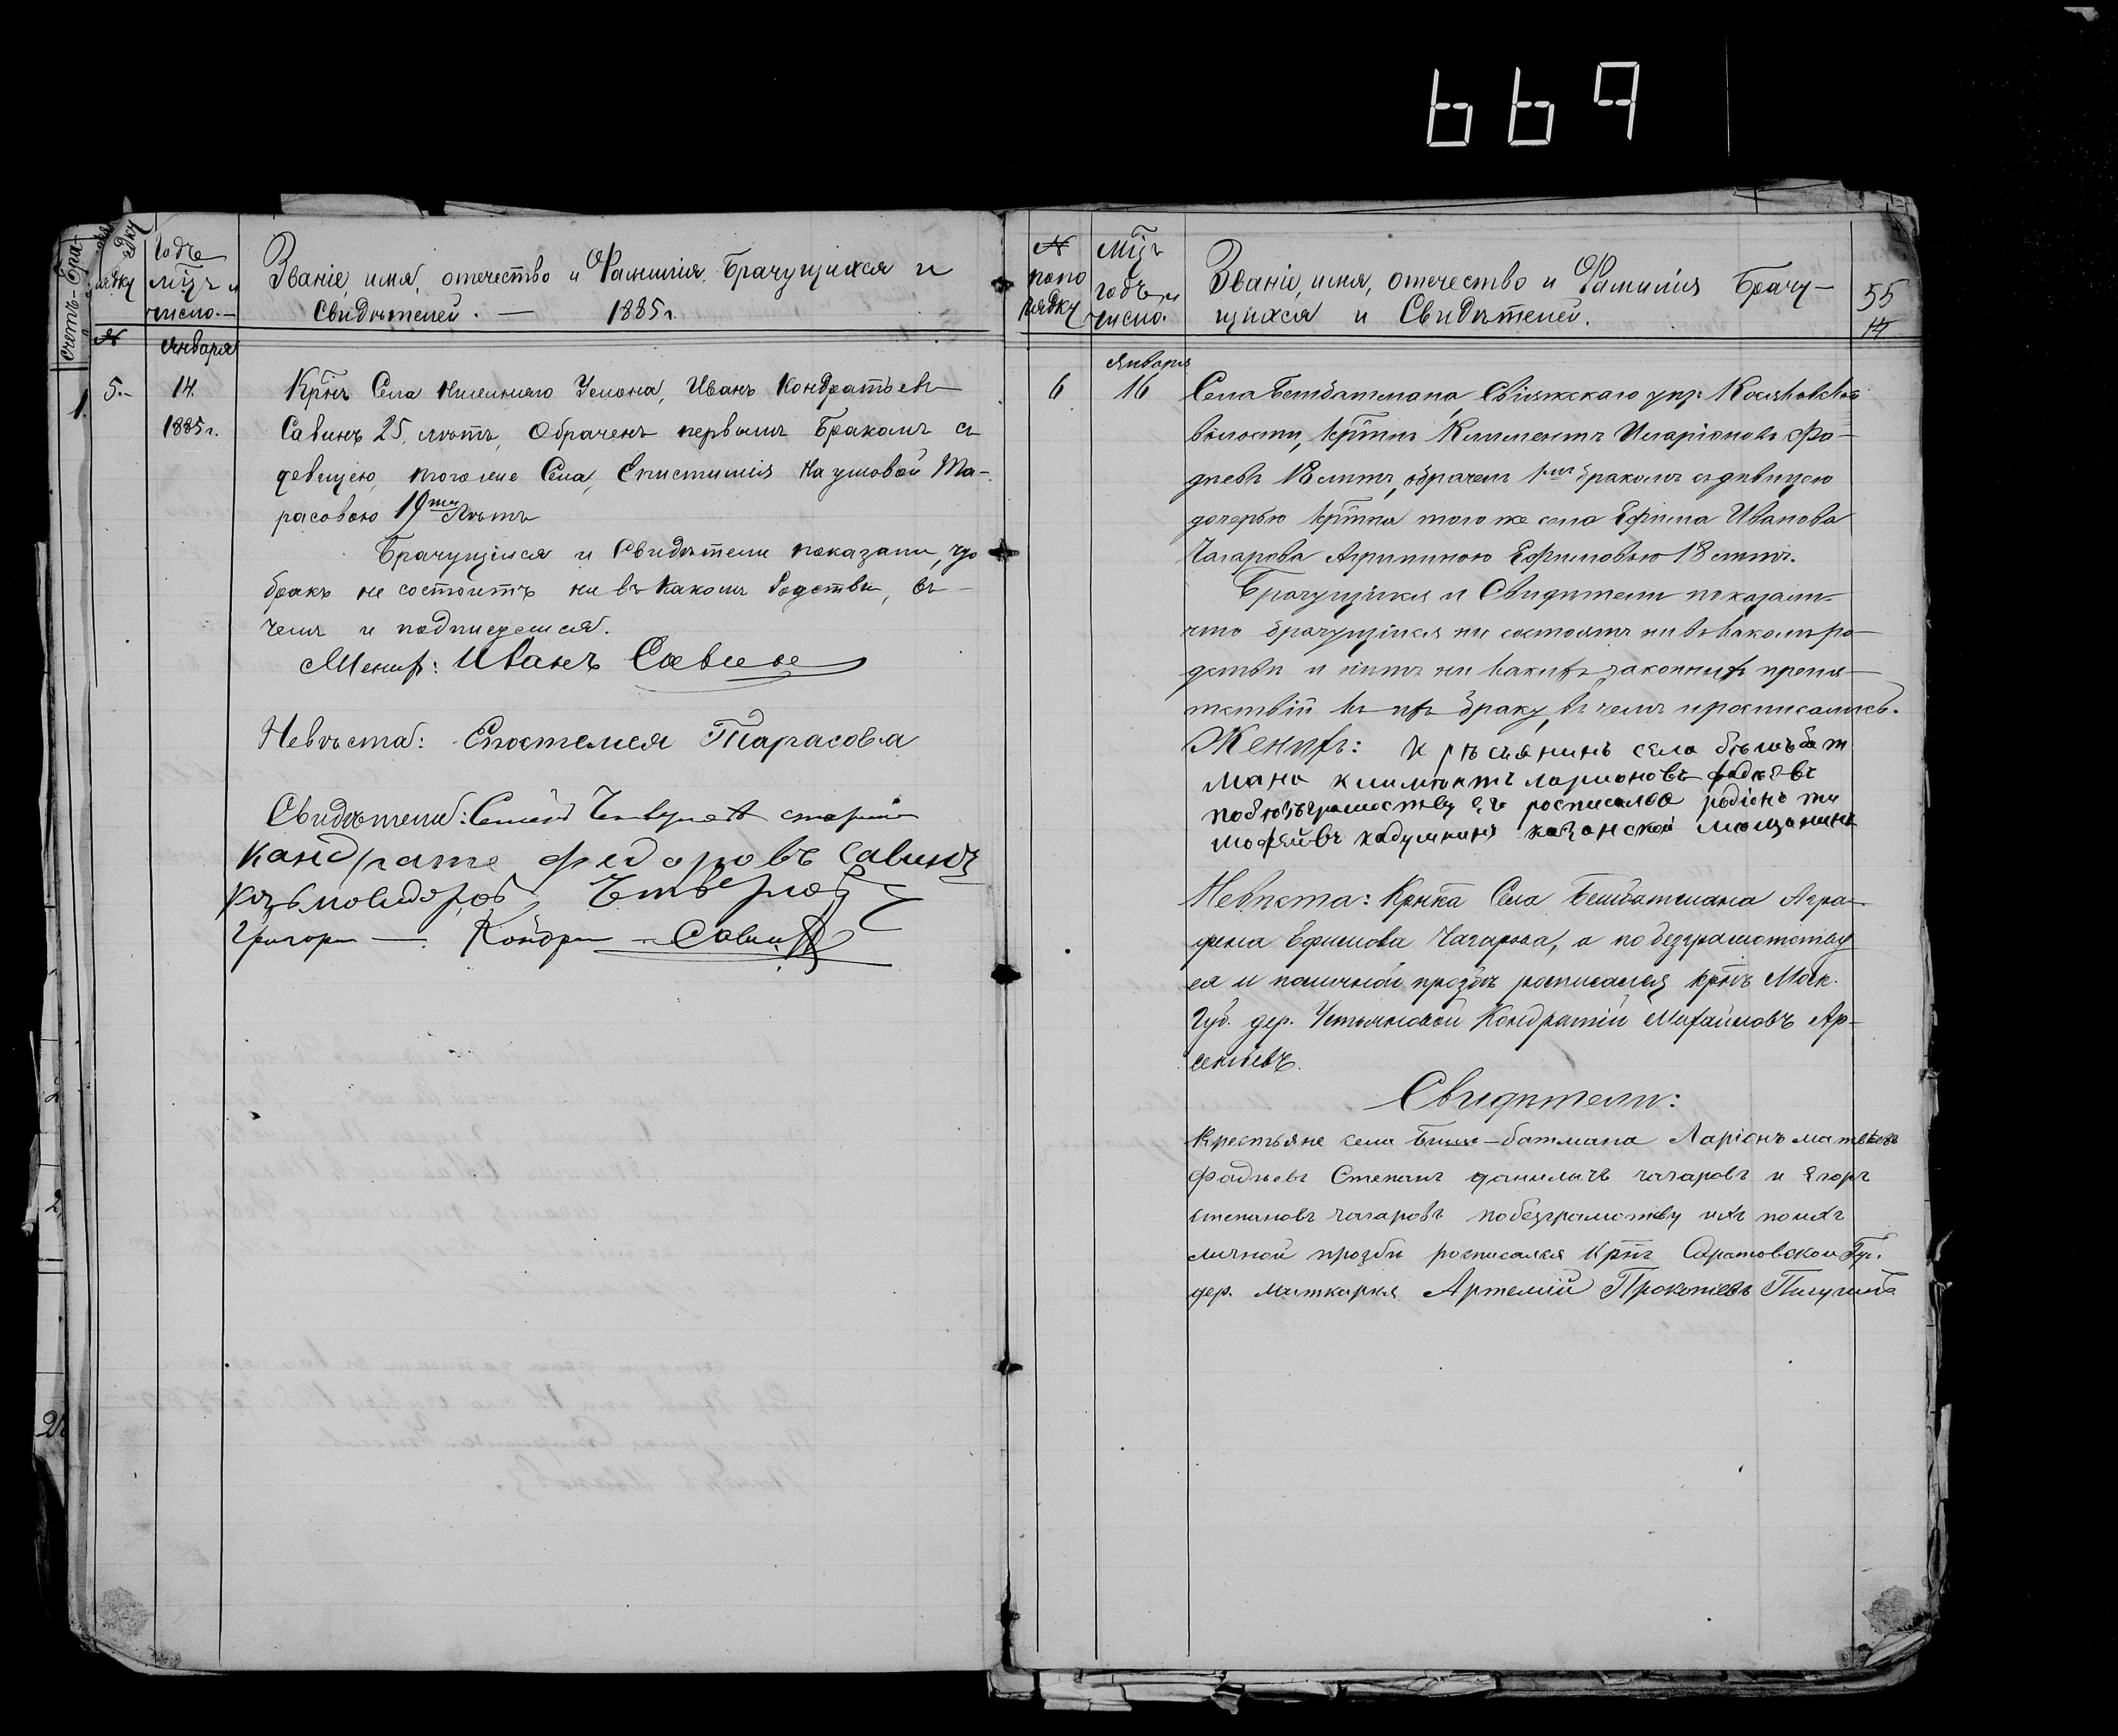 669
счетъ бра-
Годъ
мѣсц. и
число.—
Званіе, имя, отечество и Фамилія Брачущихся и
Свидѣтелей. — 1885 г.
№ января
1. 5.- 14. Крнъ Села Нижняго Услона, Иванъ Кондратьевъ
1885 г. Савинъ 25. лѣтъ, Обраченъ первымъ Бракомъ съ
девицею, тогоже Села, Епистимія Наумовой Та-
расовою 19ти Лѣтъ
Брачущіися и Свидѣтели показали, что
бракъ не состоитъ ни въ какомъ Родствѣ, въ
чемъ и подписуемся.
Женихъ: Иванъ Савинъ
Невѣста: Епестемея Тарасова
Свидѣтели: Семенъ
Кандрате федоровъ Савинъ
Григори — Кондри Савин
№
попо
рядку
Мѣц
годъ и
число.
Званіе, имя, отечество и Фамилія Брачу-
щихся и Свидѣтелей.
55
14
января
6 16 Села Бешбатмана, Свіяжскаго уѣз:
волости, крстнъ Климентъ Иларіоновъ Фа-
дѣевъ 18 лѣтъ, обрачен 1мъ бракомъ съ дѣвицею
дочерью крстна того же села Ефима Иванова
Чагарова Агрипиною Ефимовою 18 лѣтъ.
Брачущіися и Свидѣтели показали
что брачущіися не состоятъ ни въ какомъ ро-
дствѣ и нѣтъ ни какихъ законныхъ препя-
тствій къ ихъ браку, въ чемъ и росписались.
Женихъ: Крѣсьянинъ села бѣшъбат
мана климѣнтъ ларионовъ фадѣевъ
побѣзъграмоству его росписалса родіонъ ти
мофѣйвъ кадушкинъ казанской мющанинъ
Невѣста: Крнка Села Бешбатмана Агра-
фена Ефимова Чагарова, а по безграмотству
ея и поличной прозбѣ росписался крнъ Мск.
Губ. дер. Устьяновой Кондратій Михайловъ Ар-
сеньевъ.
Свидѣтели:
Крестьяне села Бишъ-батмана Ларіонъ матвѣевъ
фадѣевъ Степанъ данилычъ чагаровъ и Егоръ
степановъ чагаровъ побезграмотву ихъ поихъ
личной прозбѣ росписался крнъ Саратовской Гу.
дер. Артемій Прокопіевъ